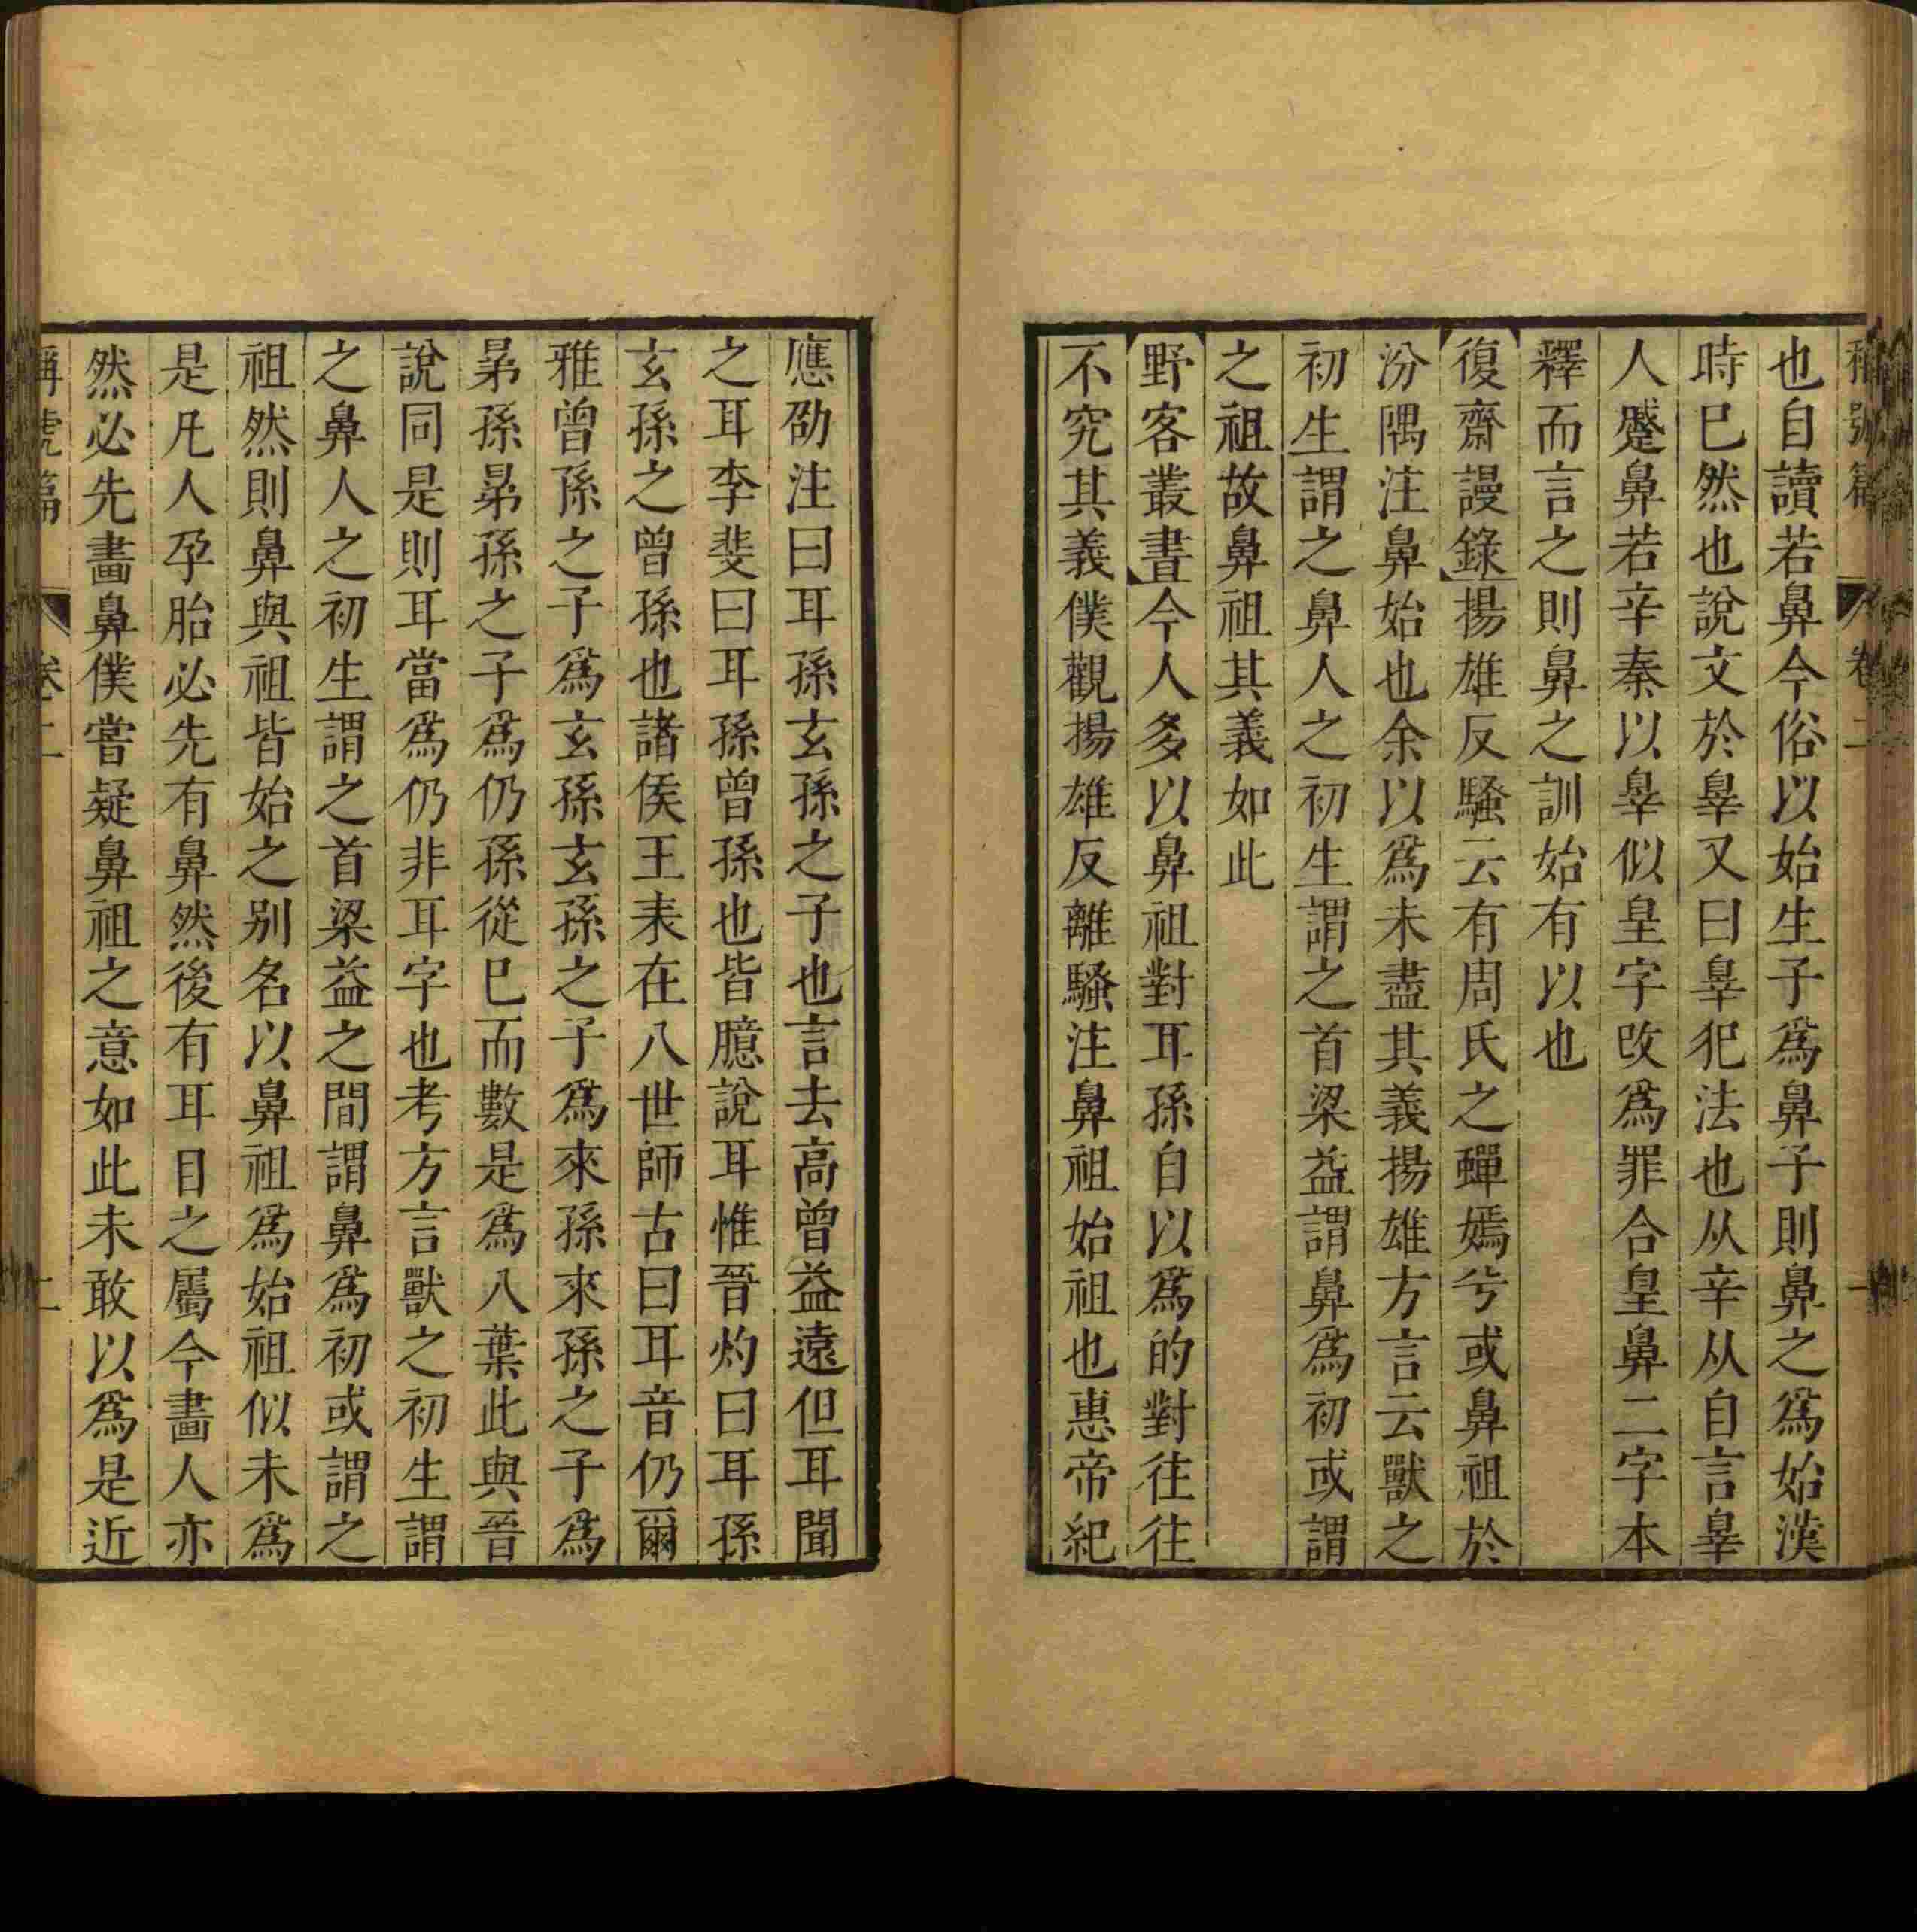 稱號篇 卷二 一
也自讀若鼻今俗以始生子爲鼻子則鼻之爲始漢
時巳然也說文於辠又曰辠犯法也从辛从自言辠
人蹙鼻若辛秦以辠似皇字改爲罪合皇鼻二字本
釋而言之則鼻之訓始有以也
復齋謾錄揚雄反騷云有周氏之蟬嫣兮或鼻祖於
汾隅注鼻始也余以爲未盡其義揚雄方言云獸之
初生謂之鼻人之初生謂之首梁益謂鼻爲初或謂
之祖故鼻祖其義如此
野客叢書今人多以鼻祖對耳孫自以爲的對往往
不究其義僕觀揚雄反離騷注鼻祖始祖也惠帝紀
應劭注曰耳孫玄孫之子也言去高曾益遠但耳聞
之耳李斐曰耳孫曾孫也皆臆說耳惟晉灼曰耳孫
玄孫之曾孫也諸侯王表在八世師古曰耳音仍爾
雅曾孫之子爲玄孫玄孫之子爲來孫來孫之子爲
晜孫晜孫之子爲仍孫從巳而數是爲八葉此與晉
說同是則耳當爲仍非耳字也考方言獸之初生謂
之鼻人之初生謂之首梁益之間謂鼻爲初或謂之
祖然則鼻與祖皆始之别名以鼻祖爲始祖似未爲
是凡人孕胎必先有鼻然後有耳目之屬今畫人亦
然必先畵鼻僕嘗疑鼻祖之意如此未敢以爲是近
稱號篇 卷二 二